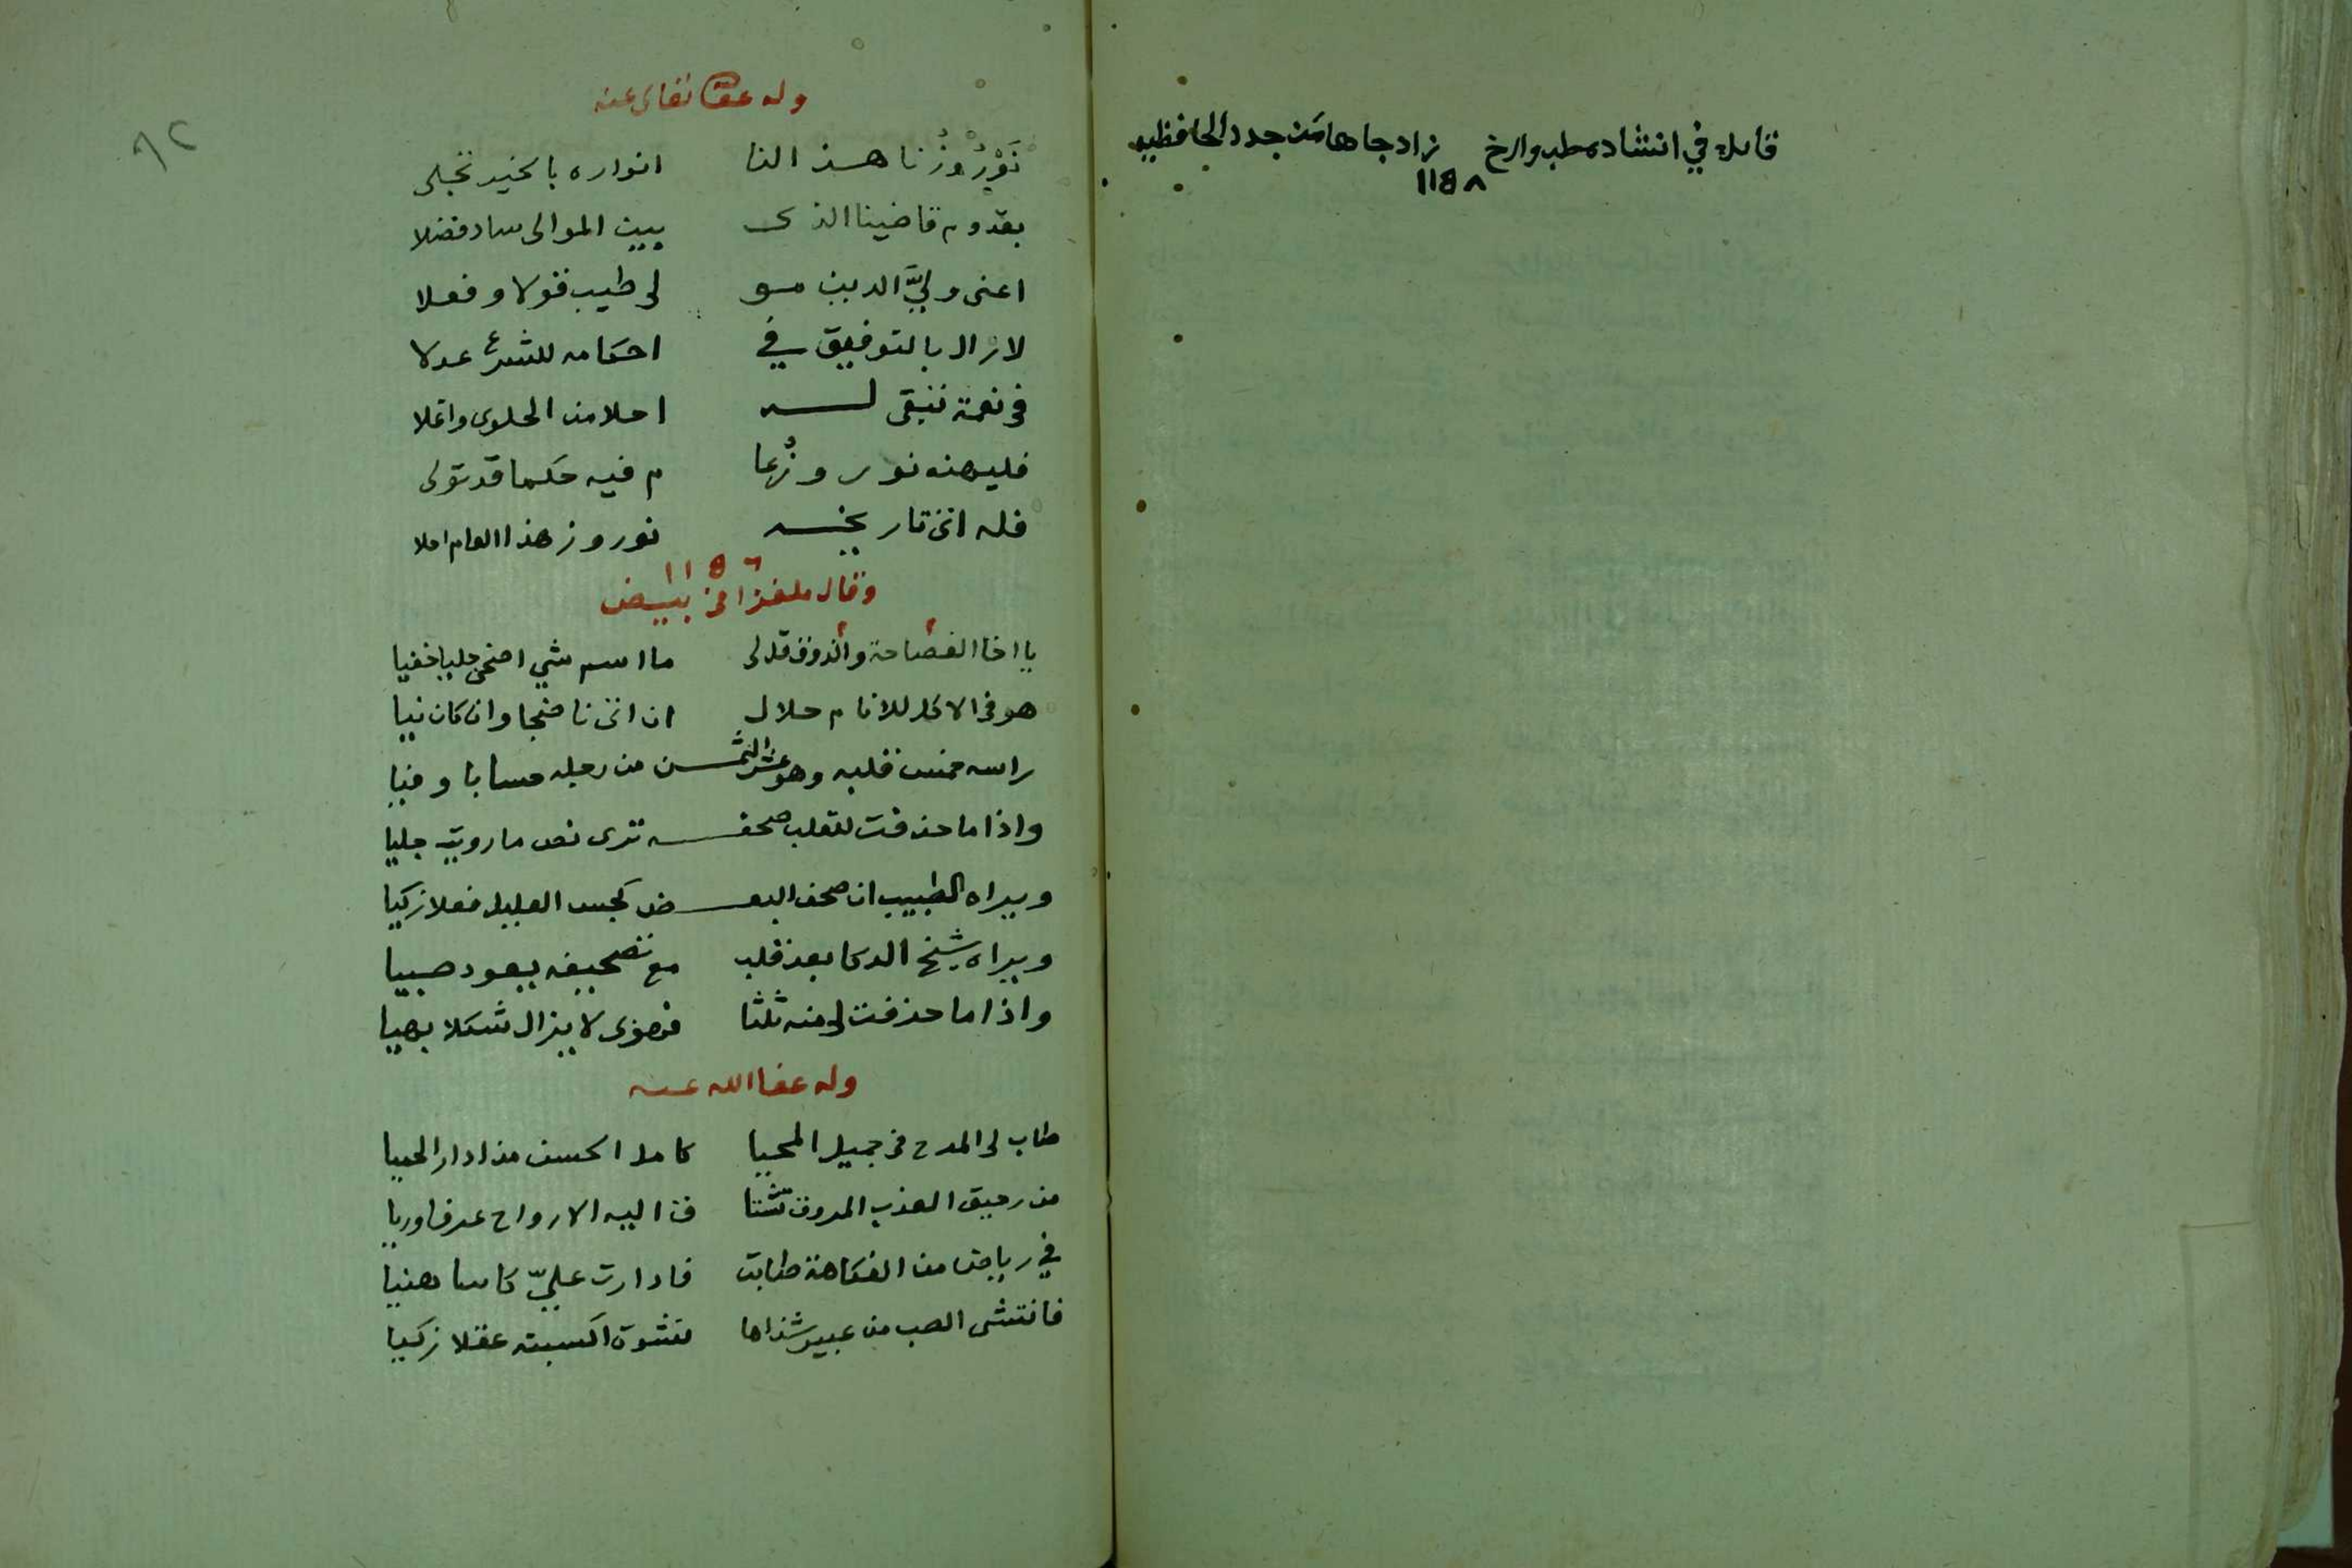 قائلا في انتشاده طب وارخ زاد جاها من جدد الحافظيه
١١٥٨
٩٢
وله عفا تعالى عنه
نَوْرُوزُنا هذا النا انواره بالخير تجلى
بقدوم قاضينا الذى ببيت الموالى ساد فضلا
اعنى وليَّ الدين مو لى طيب قولا وفعلا
لا زال بالتوفيق في احكامه للشرع عدلا
فى نعمة تبقى له احلا من الحلوى واغلا
فليهنه نوروزُ عا م فيه حكما قد تولى
فله اتى تاريخه نوروز هذا العام احلا
١١٥٦
وقال ملغزا فى بيض
يا اخا الفصاحة والذوق قل لى ما اسم شي اضحى جليا خفيا
هو فى الاكل للانام حلال ان اتى ناضجا وان كان نيا
راسه خمس قلبه وهو عشر الثمـن من رجله حسابا وفيا
واذا ما حذفت للقلب صحفـه ترى نص ما رويت جليا
ويراه الطبيب ان صحف البعـض كجس العليل فعلا زكيا
ويراه شيخ الذكا بعد قلب مع تصحيفه يعود صبيا
واذا ما حذفت لى منه ثلثا فهو زى لا يزال شكلا بهيا
وله عفا الله عنه
طاب لى المدح فى جميل المحيا كامل الحسن مذ ادار الحميا
من رحيق العذب المروق تشتا ق اليه الارواح عرفا وريا
في رياض من الفكاهة طابت فادارت عليّ كاسا هنيا
فانتشى الصب من عبير شذاها نشوة اكسبته عقلا زكيا